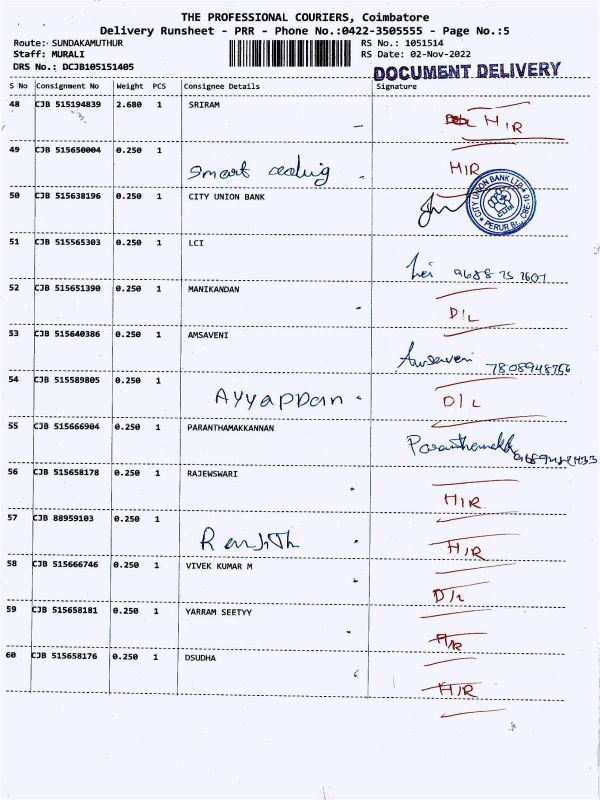 THE PROFESSIONAL COURIERS, Coimbatore
Delivery Runsheet - PRR - Phone No.:0422-3505555 - Page No.:5
Route: SUNDAKAMUTHUR RS No.: 1051514
Staff: MURALI RS Date: 02-Nov-2022
DRS No.: DCJB105151405 DOCUMENT DELIVERY
S No Consignment No Weight PCS Consignee Details Signature
48 CJB 515194839 2.680 1 SRIRAM
HIR
49 CJB 515650004 0.250 1
HIR
50 CJB 515638196 0.250 1 CITY UNION BANK
CITY UNION BANK LTD
51 CJB 515565303 0.250 1 LCI
52 CJB 515651390 0.250 1 MANIKANDAN
D/L
53 CJB 515640386 0.250 1 AMSAVENI
Amsaveni
54 CJB 515589805 0.250 1
Ayyappan D/L
55 CJB 515666904 0.250 1 PARANTHAMAKKANNAN
56 CJB 515658178 0.250 1 RAJEWSWARI
HIR
57 CJB 88959103 0.250 1
Ranjith HIR
58 CJB 515666746 0.250 1 VIVEK KUMAR M
D/L
59 CJB 515658181 0.250 1 YARRAM SEETYY
H/R
60 CJB 515658176 0.250 1 DSUDHA
HIR